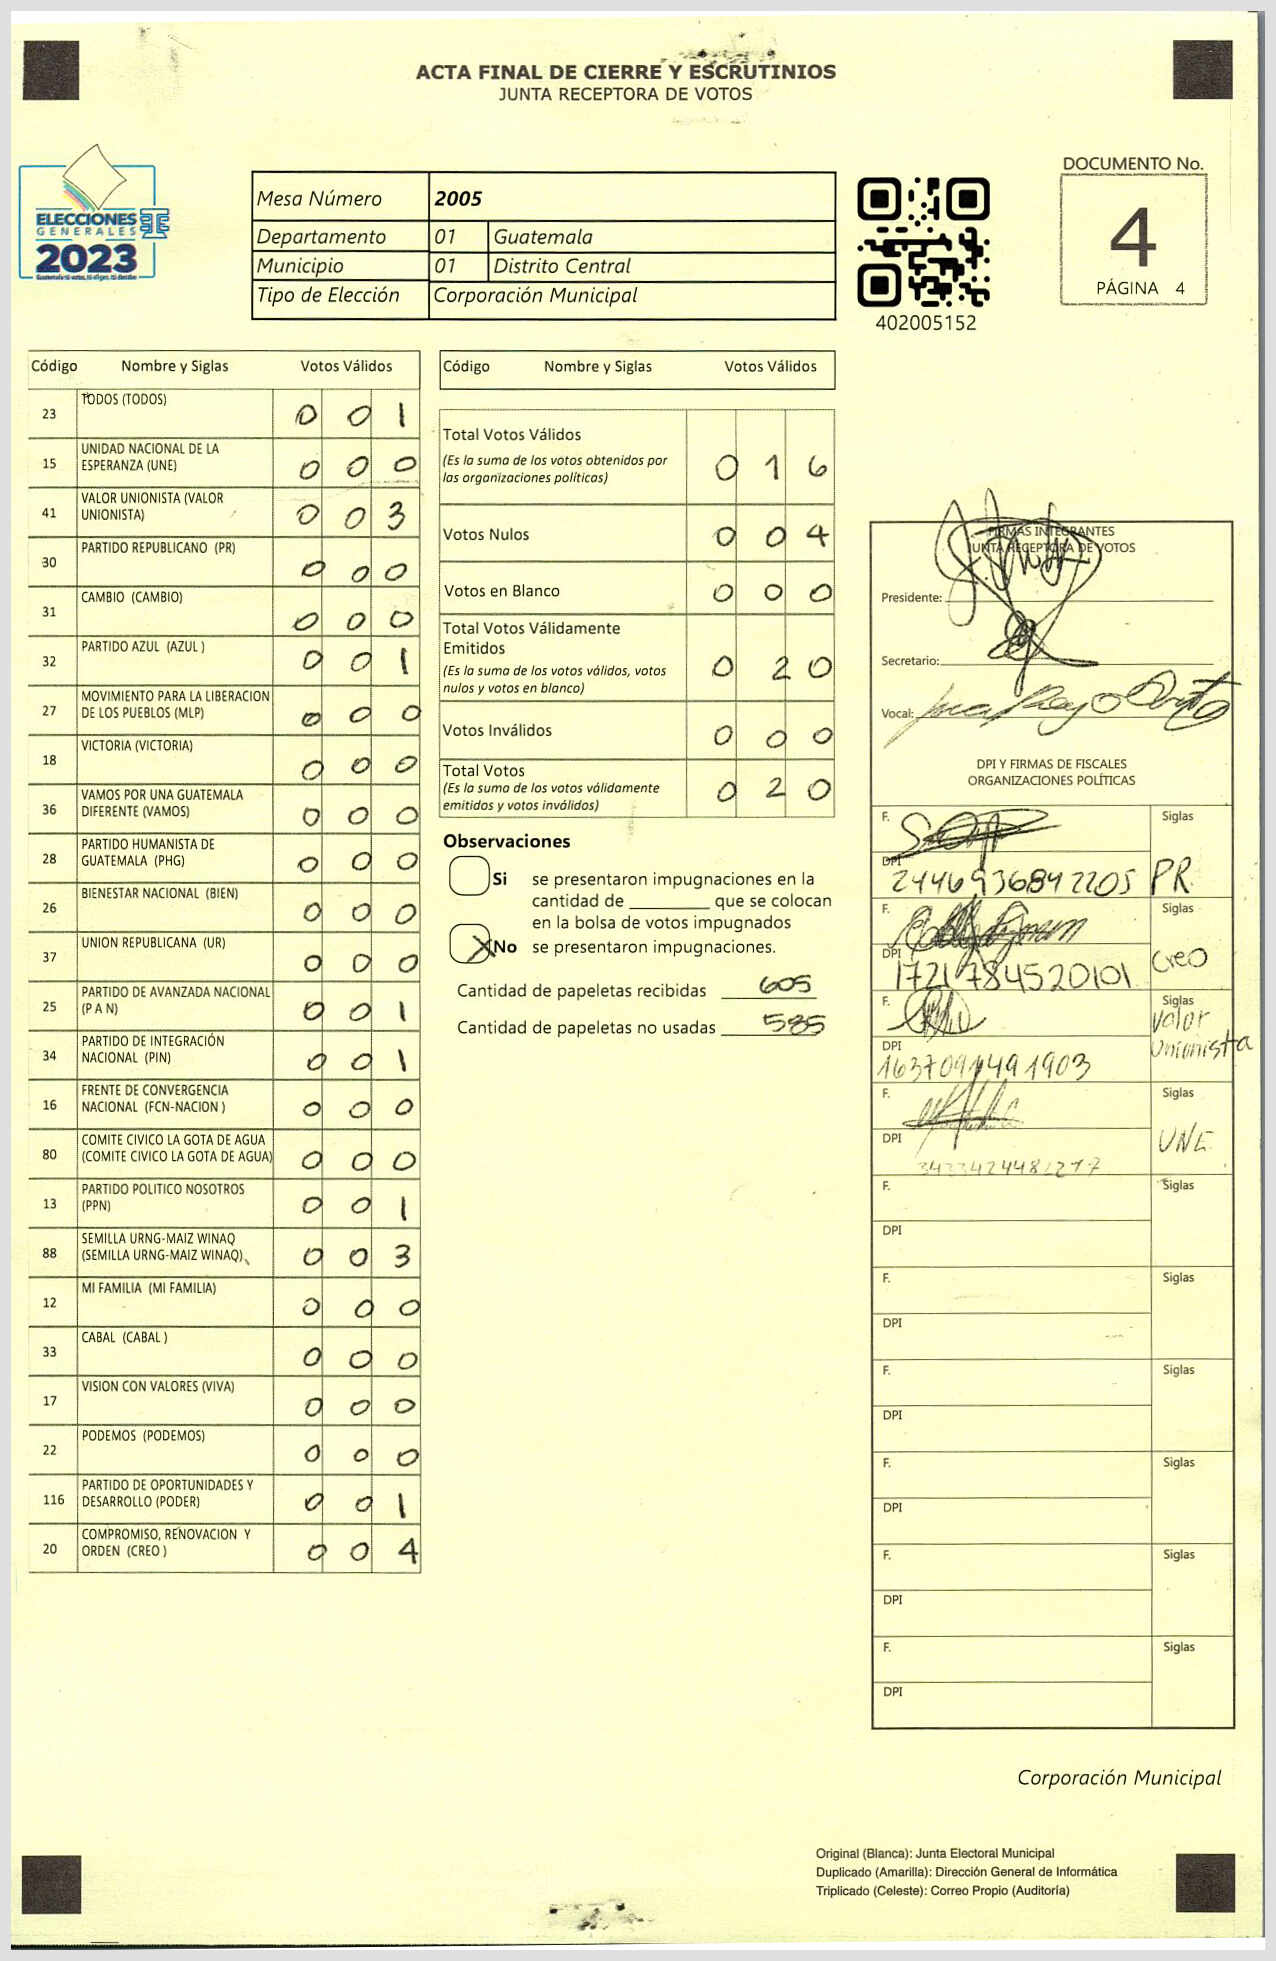 ACTA FINAL DE CIERRE Y ESCRUTINIOS
JUNTA RECEPTORA DE VOTOS
ELECCIONES
GENERALES
2023
Mesa Número 2005
Departamento 01 Guatemala
Municipio 01 Distrito Central
Tipo de Elección Corporación Municipal
402005152
DOCUMENTO No.
4
PÁGINA 4
Código Nombre y Siglas Votos Válidos
23 TODOS (TODOS) 0 0 1
15 UNIDAD NACIONAL DE LA
ESPERANZA (UNE) 0 0 0
41 VALOR UNIONISTA (VALOR
UNIONISTA) 0 0 3
30 PARTIDO REPUBLICANO (PR) 0 0 0
31 CAMBIO (CAMBIO) 0 0 0
32 PARTIDO AZUL (AZUL ) 0 0 1
27 MOVIMIENTO PARA LA LIBERACION
DE LOS PUEBLOS (MLP) 0 0 0
18 VICTORIA (VICTORIA) 0 0 0
36 VAMOS POR UNA GUATEMALA
DIFERENTE (VAMOS) 0 0 0
28 PARTIDO HUMANISTA DE
GUATEMALA (PHG) 0 0 0
26 BIENESTAR NACIONAL (BIEN) 0 0 0
37 UNION REPUBLICANA (UR) 0 0 0
25 PARTIDO DE AVANZADA NACIONAL
(P A N) 0 0 1
34 PARTIDO DE INTEGRACIÓN
NACIONAL (PIN) 0 0 1
16 FRENTE DE CONVERGENCIA
NACIONAL (FCN-NACION ) 0 0 0
80 COMITE CIVICO LA GOTA DE AGUA
(COMITE CIVICO LA GOTA DE AGUA) 0 0 0
13 PARTIDO POLITICO NOSOTROS
(PPN) 0 0 1
88 SEMILLA URNG-MAIZ WINAQ
(SEMILLA URNG-MAIZ WINAQ) 0 0 3
12 MI FAMILIA (MI FAMILIA) 0 0 0
33 CABAL (CABAL ) 0 0 0
17 VISION CON VALORES (VIVA) 0 0 0
22 PODEMOS (PODEMOS) 0 0 0
116 PARTIDO DE OPORTUNIDADES Y
DESARROLLO (PODER) 0 0 1
20 COMPROMISO, RENOVACION Y
ORDEN (CREO ) 0 0 4
Código Nombre y Siglas Votos Válidos
Total Votos Válidos
(Es la suma de los votos obtenidos por
las organizaciones políticas) 0 1 6
Votos Nulos 0 0 4
Votos en Blanco 0 0 0
Total Votos Válidamente
Emitidos
(Es la suma de los votos válidos, votos
nulos y votos en blanco) 0 2 0
Votos Inválidos 0 0 0
Total Votos
(Es la suma de los votos válidamente
emitidos y votos inválidos) 0 2 0
Observaciones
Si se presentaron impugnaciones en la
cantidad de ________ que se colocan
en la bolsa de votos impugnados
X No se presentaron impugnaciones.
Cantidad de papeletas recibidas 605
Cantidad de papeletas no usadas 585
FIRMAS INTEGRANTES
JUNTA RECEPTORA DE VOTOS
Presidente:
Secretario:
Vocal:
DPI Y FIRMAS DE FISCALES
ORGANIZACIONES POLÍTICAS
F. Siglas
DPI 2446936842205 PR
F. Siglas
DPI 1721784520101 Creo
F. Siglas
Valor
Unionista
DPI 1637091491903
F. Siglas
DPI UNE
F. Siglas
DPI
F. Siglas
DPI
F. Siglas
DPI
F. Siglas
DPI
F. Siglas
DPI
F. Siglas
DPI
Corporación Municipal
Original (Blanca): Junta Electoral Municipal
Duplicado (Amarilla): Dirección General de Informática
Triplicado (Celeste): Correo Propio (Auditoría)